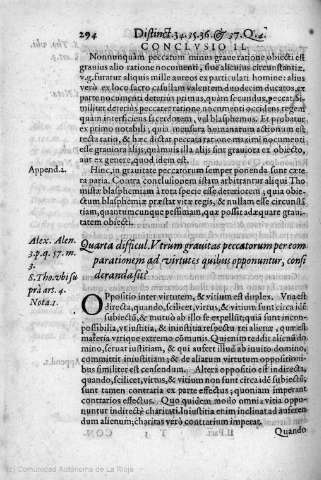 294 Distinct. 34. 35. 36. & 37. Q. 4.
CONCLVSIO II.
Nonnunquàm peccatum minus graue ratione obiecti est
grauius alio ratione nocumenti, siue alicuius circunstantiæ.
v. g. furatur aliquis mille aureos ex particulari homine: alius
verò ex loco sacro casullam valentem duodecim ducatos, ex
parte nocumenti deterius primus, quàm secundus, peccat. Si-
militer deterius peccaret ratione nocumenti occidens regem
quàm interficiens sacerdotem, vel blasphemus. Et probatur
ex primo notabili; quia mensura humanarum actionum est
recta ratio, & hæc dictat peccatum ratione maximi nocumenti
esse grauius alijs, quàmuis illa alijs sint grauiora ex obiecto,
aut ex genere, quod idem est.
Append. 2. Hinc, in grauitate peccatorum semper ponenda sunt cæte-
ra paria. Contra conclusionem istam arbitrantur aliqui Tho-
mistæ blasphemiam à tota specie esse deteriorem; quia obie-
ctum blasphemiæ præstat vitæ regis, & nullam esse circunstã-
tiam, quantumcunque pessimam, quæ possit adæquare graui-
tatem obiecti.
Alex. Alen.
3. p. q. 37. m.
3.
S. Tho. vbi su
prà art. 4.
Nota. 1.
Quarta difficul. Vtrum grauitas peccatorum per com
parationem ad virtutes quibus opponuntur, consi
deranda sit?
OPpositio inter virtutem, & vitium est duplex. Vna est
directa, quando, scilicet, virtus, & vitium sunt circa idẽ
subiectũ, & mutuò ab illo se expellũt; quia sunt incom-
possibilia, vt iustitia, & iniustitia respectu rei alienæ, quæ est
materia vtrique extremo communis. Quienim reddit alienũ do-
mino, seruat iustitiam, & qui aufert illud ab inuito domino,
committit iniustitiam; & de aliarum virtutum oppositioni-
bus similiter est censendum. Altera oppositio est indirecta,
quando, scilicet, virtus, & vitium non sunt circa idẽ subiectũ;
sunt tamen contraria ex parte effectus; quoniam imperant
contrarios effectus. Quo quidem modo omnia vitia oppo-
nuntur indirectè charitati. Iniustitia enim inclinat ad auferen-
dum alienum; charitas verò contrarium imperat.
Quando
(c) Comunidad Autónoma de La Rioja